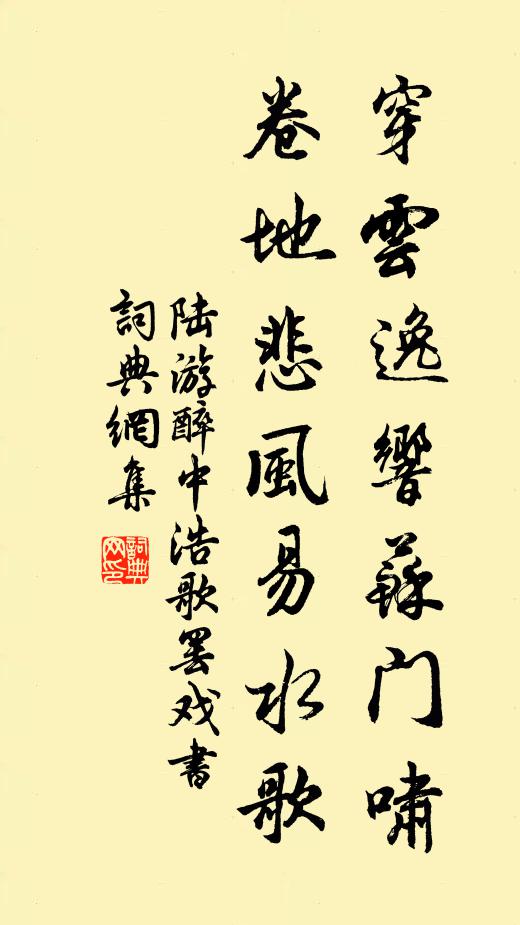 穿雲逸響蘇门嘯
卷地悲風易水歌
陆游醉中浩歌罢戏書
詞典網集
詞典网印